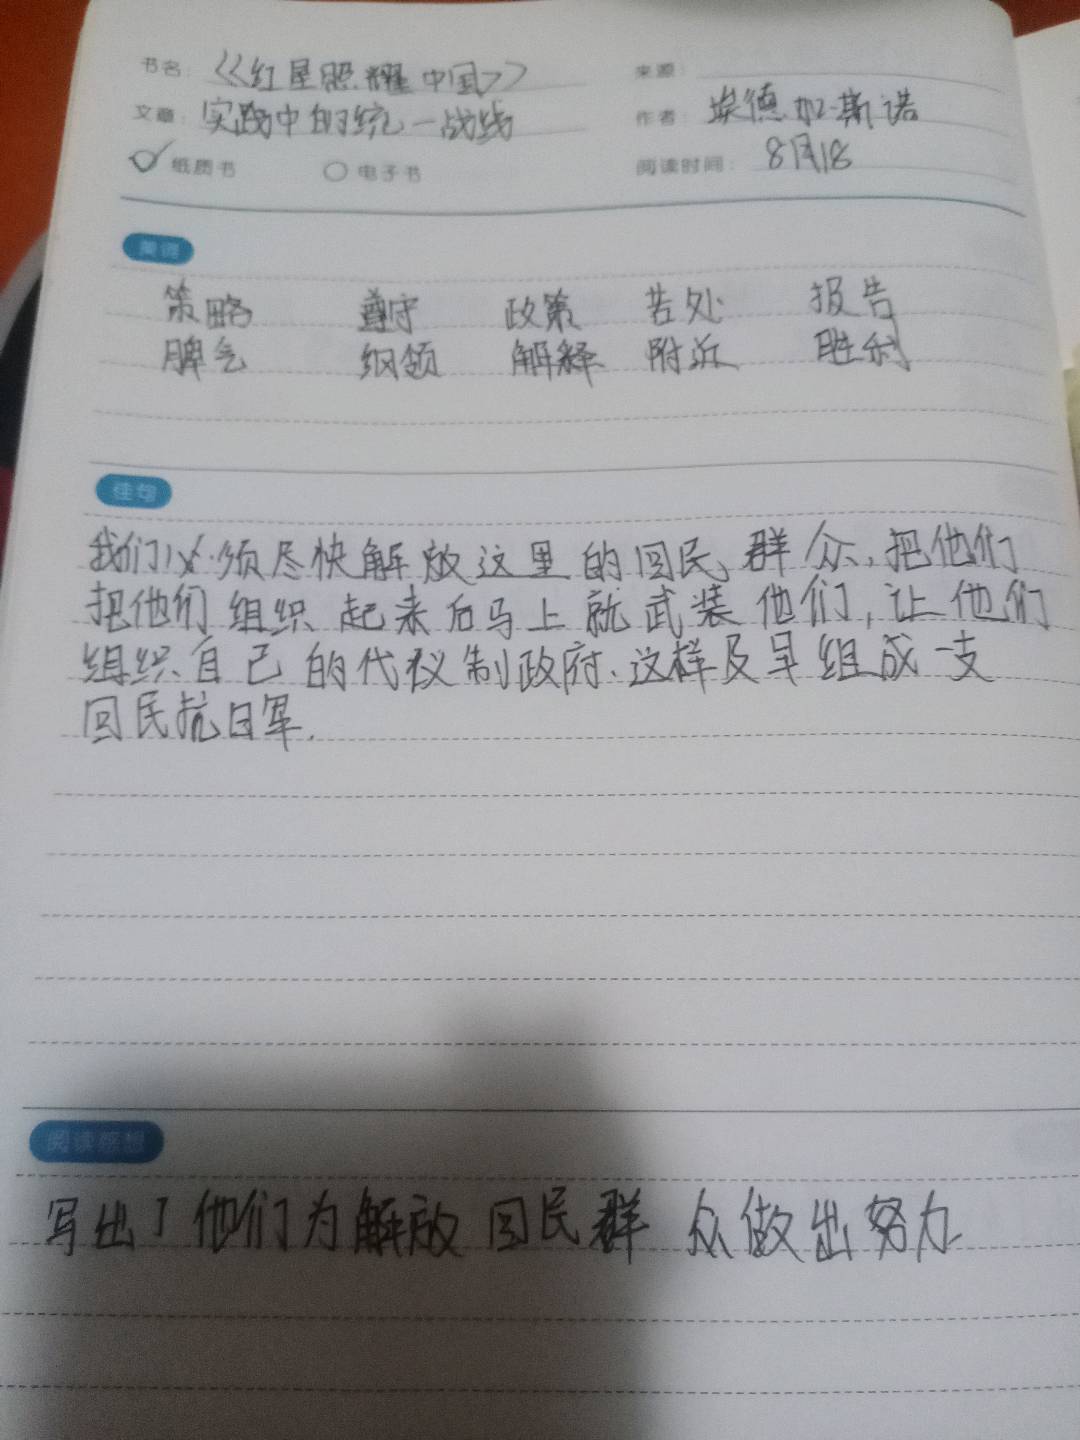 书名：《红星照耀中国》 来源：
文章：实践中的统一战线 作者：埃德加·斯诺
纸质书 电子书 阅读时间：8月18
美词
策略 遵守 政策 苦处 报告
脾气 纲领 解释 附近 胜利
佳句
我们必须尽快解放这里的回民群众,把他们
把他们组织起来后马上就武装他们,让他们
组织自己的代议制政府、这样及早组成一支
回民抗日军.
阅读感想
写出了他们为解放回民群众做出努力